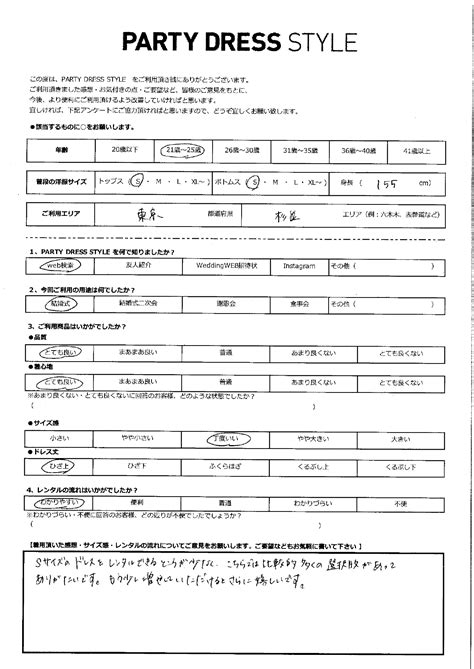 PARTY DRESS STYLE
この度は、PARTY DRESS STYLE をご利用頂き誠にありがとうございます。
ご利用頂きました感想・お気付きの点・ご要望など、皆様のご意見をもとに、
今後、より便利にご利用頂けるよう改善していければと思います。
宜しければ、下記アンケートにご協力頂ければと思いますので、どうぞ宜しくお願い致します。
●該当するものに○をお願いします。
年齢 20歳以下 21歳～25歳 26歳～30歳 31歳～35歳 36歳～40歳 41歳以上
普段の洋服サイズ トップス（ S ・ M ・ L ・ XL～） ボトムス（ S ・ M ・ L ・ XL～） 身長 （ 155 cm）
ご利用エリア 東京 都道府県 杉並 エリア（例：六本木、表参道など）
1、PARTY DRESS STYLE を何で知りましたか？
web検索 友人紹介 WeddingWEB招待状 Instagram その他（ ）
2、今回ご利用の用途は何でしたか？
結婚式 結婚式二次会 謝恩会 食事会 その他（ ）
3、ご利用商品はいかがでしたか？
●品質
とても良い まあまあ良い 普通 あまり良くない とても良くない
●着心地
とても良い まあまあ良い 普通 あまり良くない とても良くない
※あまり良くない・とても良くないに回答のお客様、どのような状態でしたか？
（ ）
●サイズ感
小さい やや小さい 丁度いい やや大きい 大きい
●ドレス丈
ひざ上 ひざ下 ふくらはぎ くるぶし上 くるぶし下
4、レンタルの流れはいかがでしたか？
わかりやすい 便利 普通 わかりづらい 不便
※わかりづらい・不便に回答のお客様、どの辺りが不便でしたでしょうか？
（ ）
【着用頂いた感想・サイズ感・レンタルの流れについてご意見をお願いします。ご要望などもお気軽に書いて下さい】
Sサイズのドレスをレンタルできるところが少なく、こちらでは比較的多くの選択肢があって
ありがたいです。もう少し増やしていただけるとさらに嬉しいです。